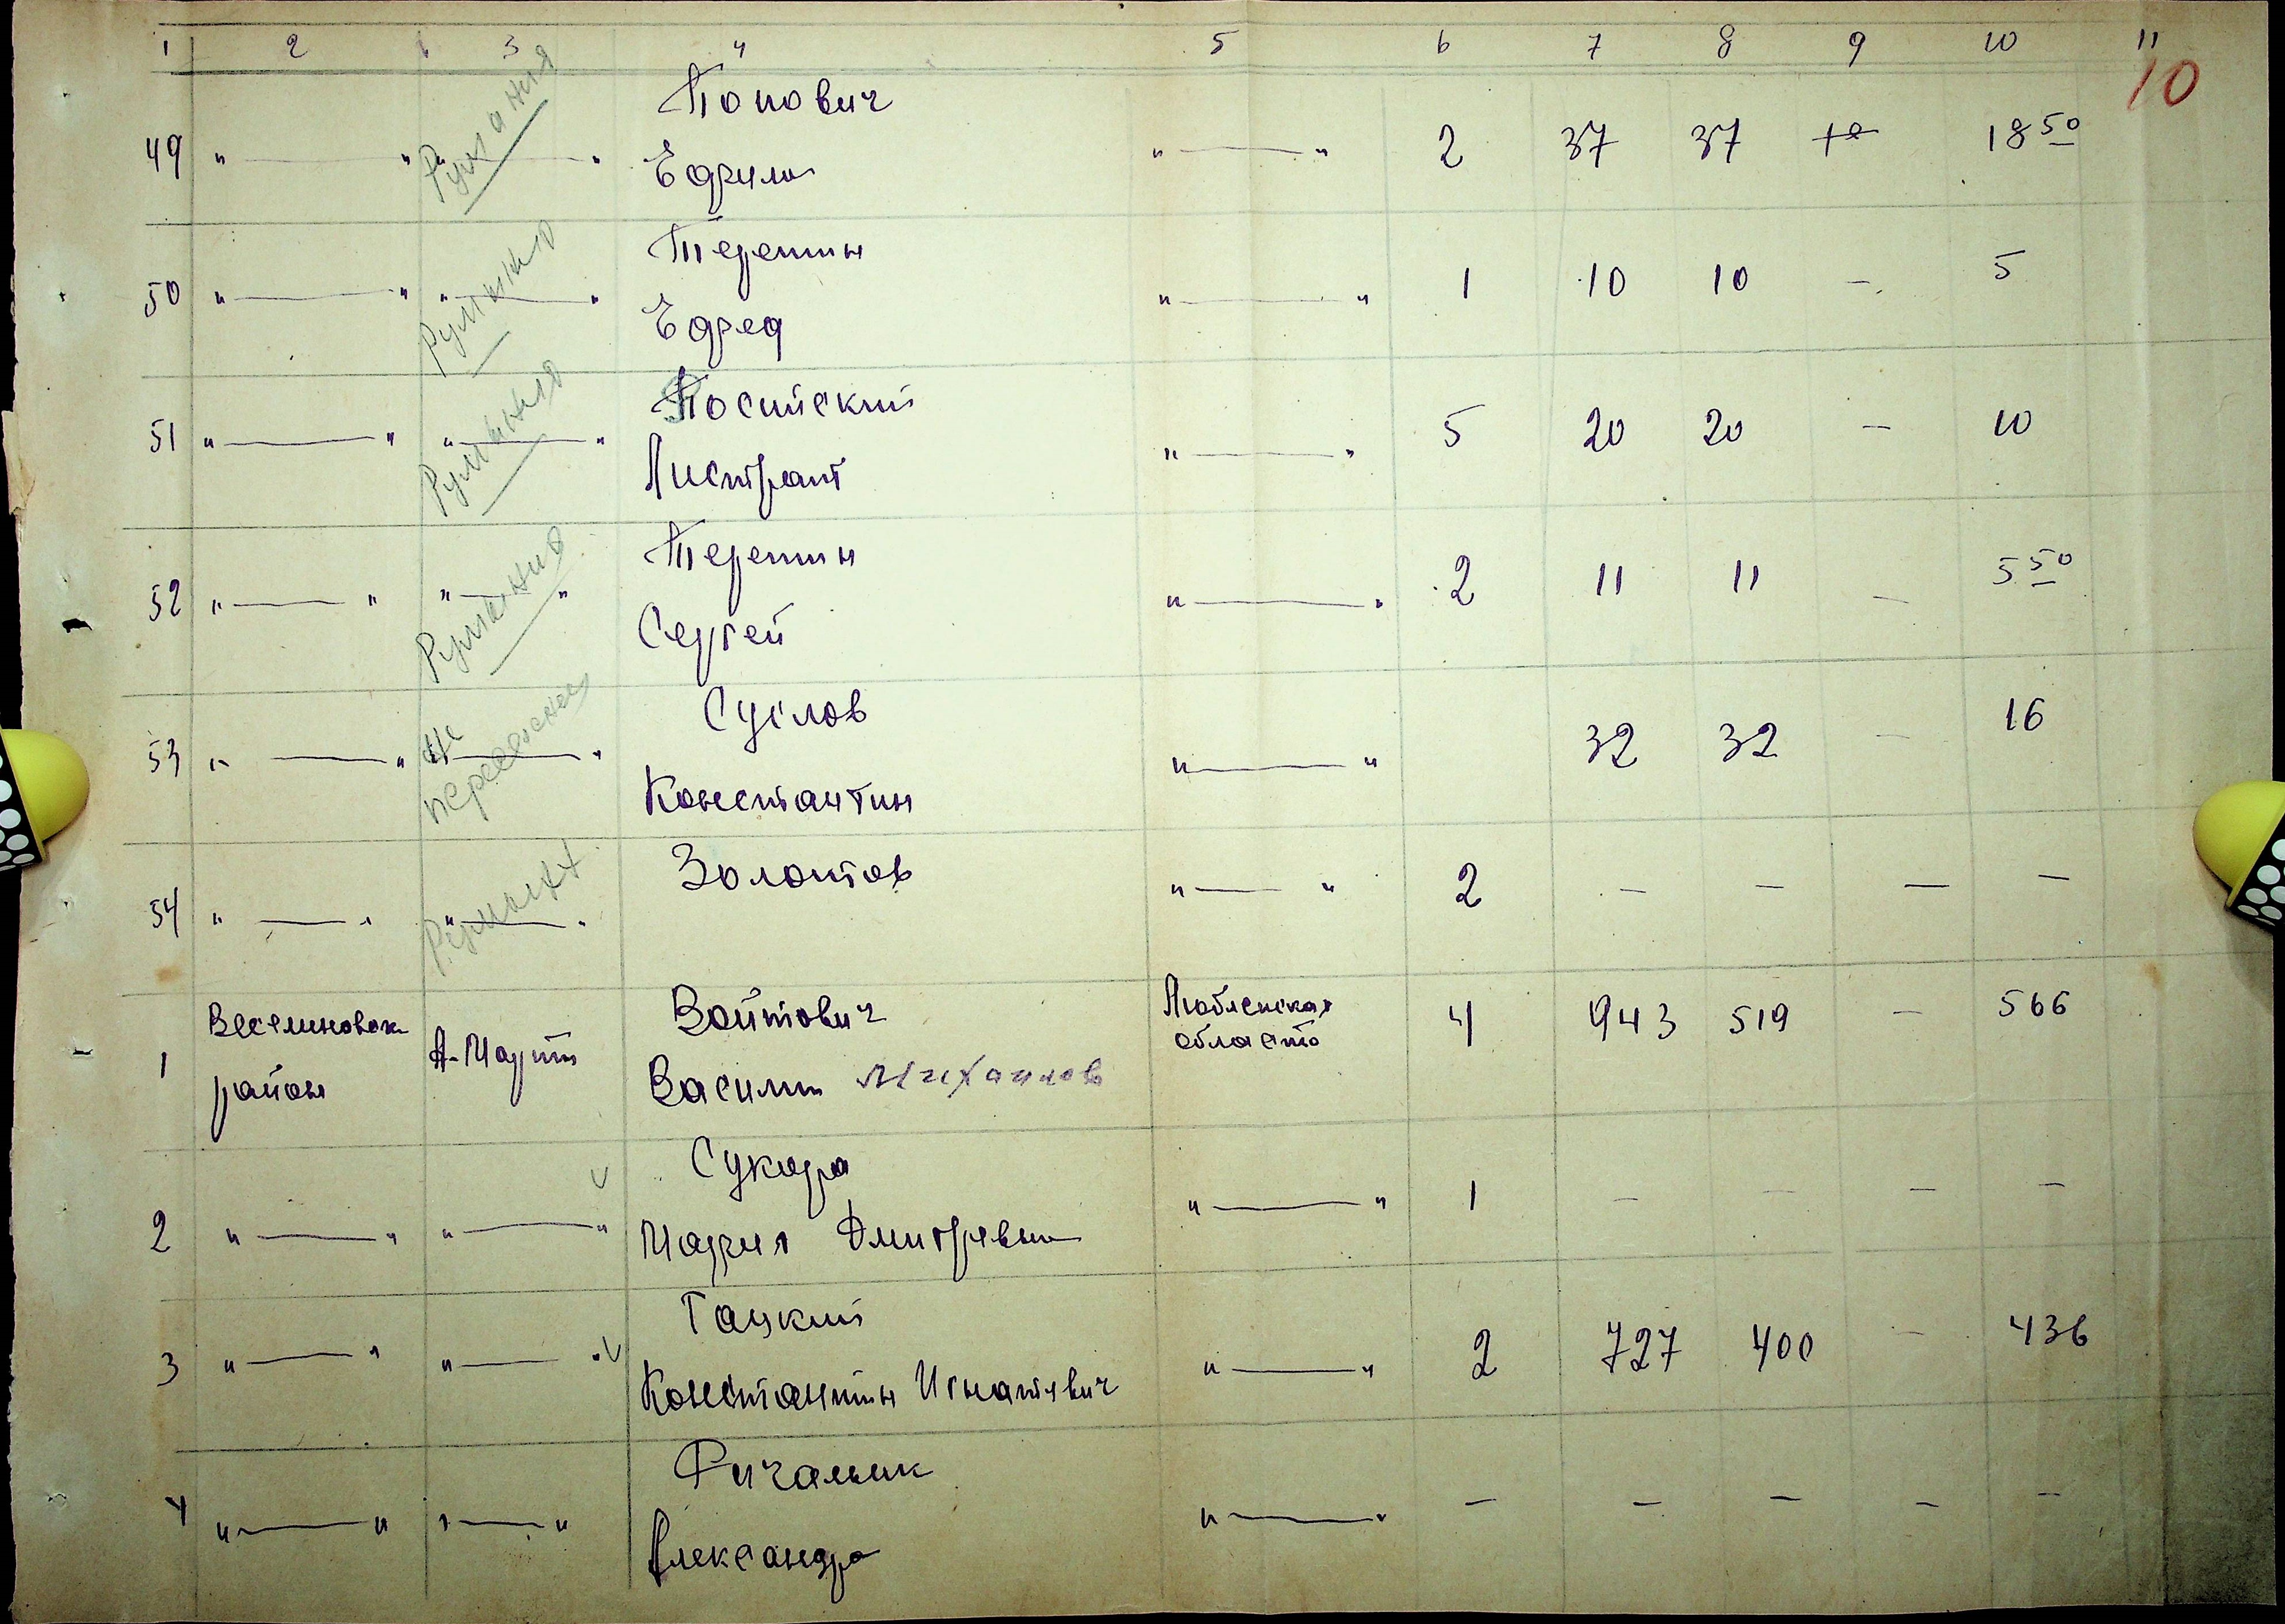 1 2 3 4 5 6 7 8 9 10 11
10
Румыния
Попович
49 " — " " — " " — " 2 37 37 18 50
Ефим
Румыния
Терентин
50 " — " " — " " — " 1 10 10 — 5
Ефрем
Румыния
Посийский
51 " — " " — " " — " 5 20 20 — 10
Листрат
Румыния
Терентин
52 " — " " — " " — " 2 11 11 — 5 50
Сергей
не переселенец
Суслов
53 " — " " — " " — " 32 32 — 16
Константин
Румын
Золотов
54 " — " " — " " — " 2 — — — —
Веселиновск. А-Марти Войтович Любленская 4 943 519 — 566
1 район Василий Михайлов область
Сукара
2 " — " " — " " — " 1 — — — —
Мария Дмитревна
Гацкий
3 " — " " — " " — " 2 727 400 — 436
Константин Игнатевич
Фичалик
4 " — " " — " " — " — — — — —
Александра